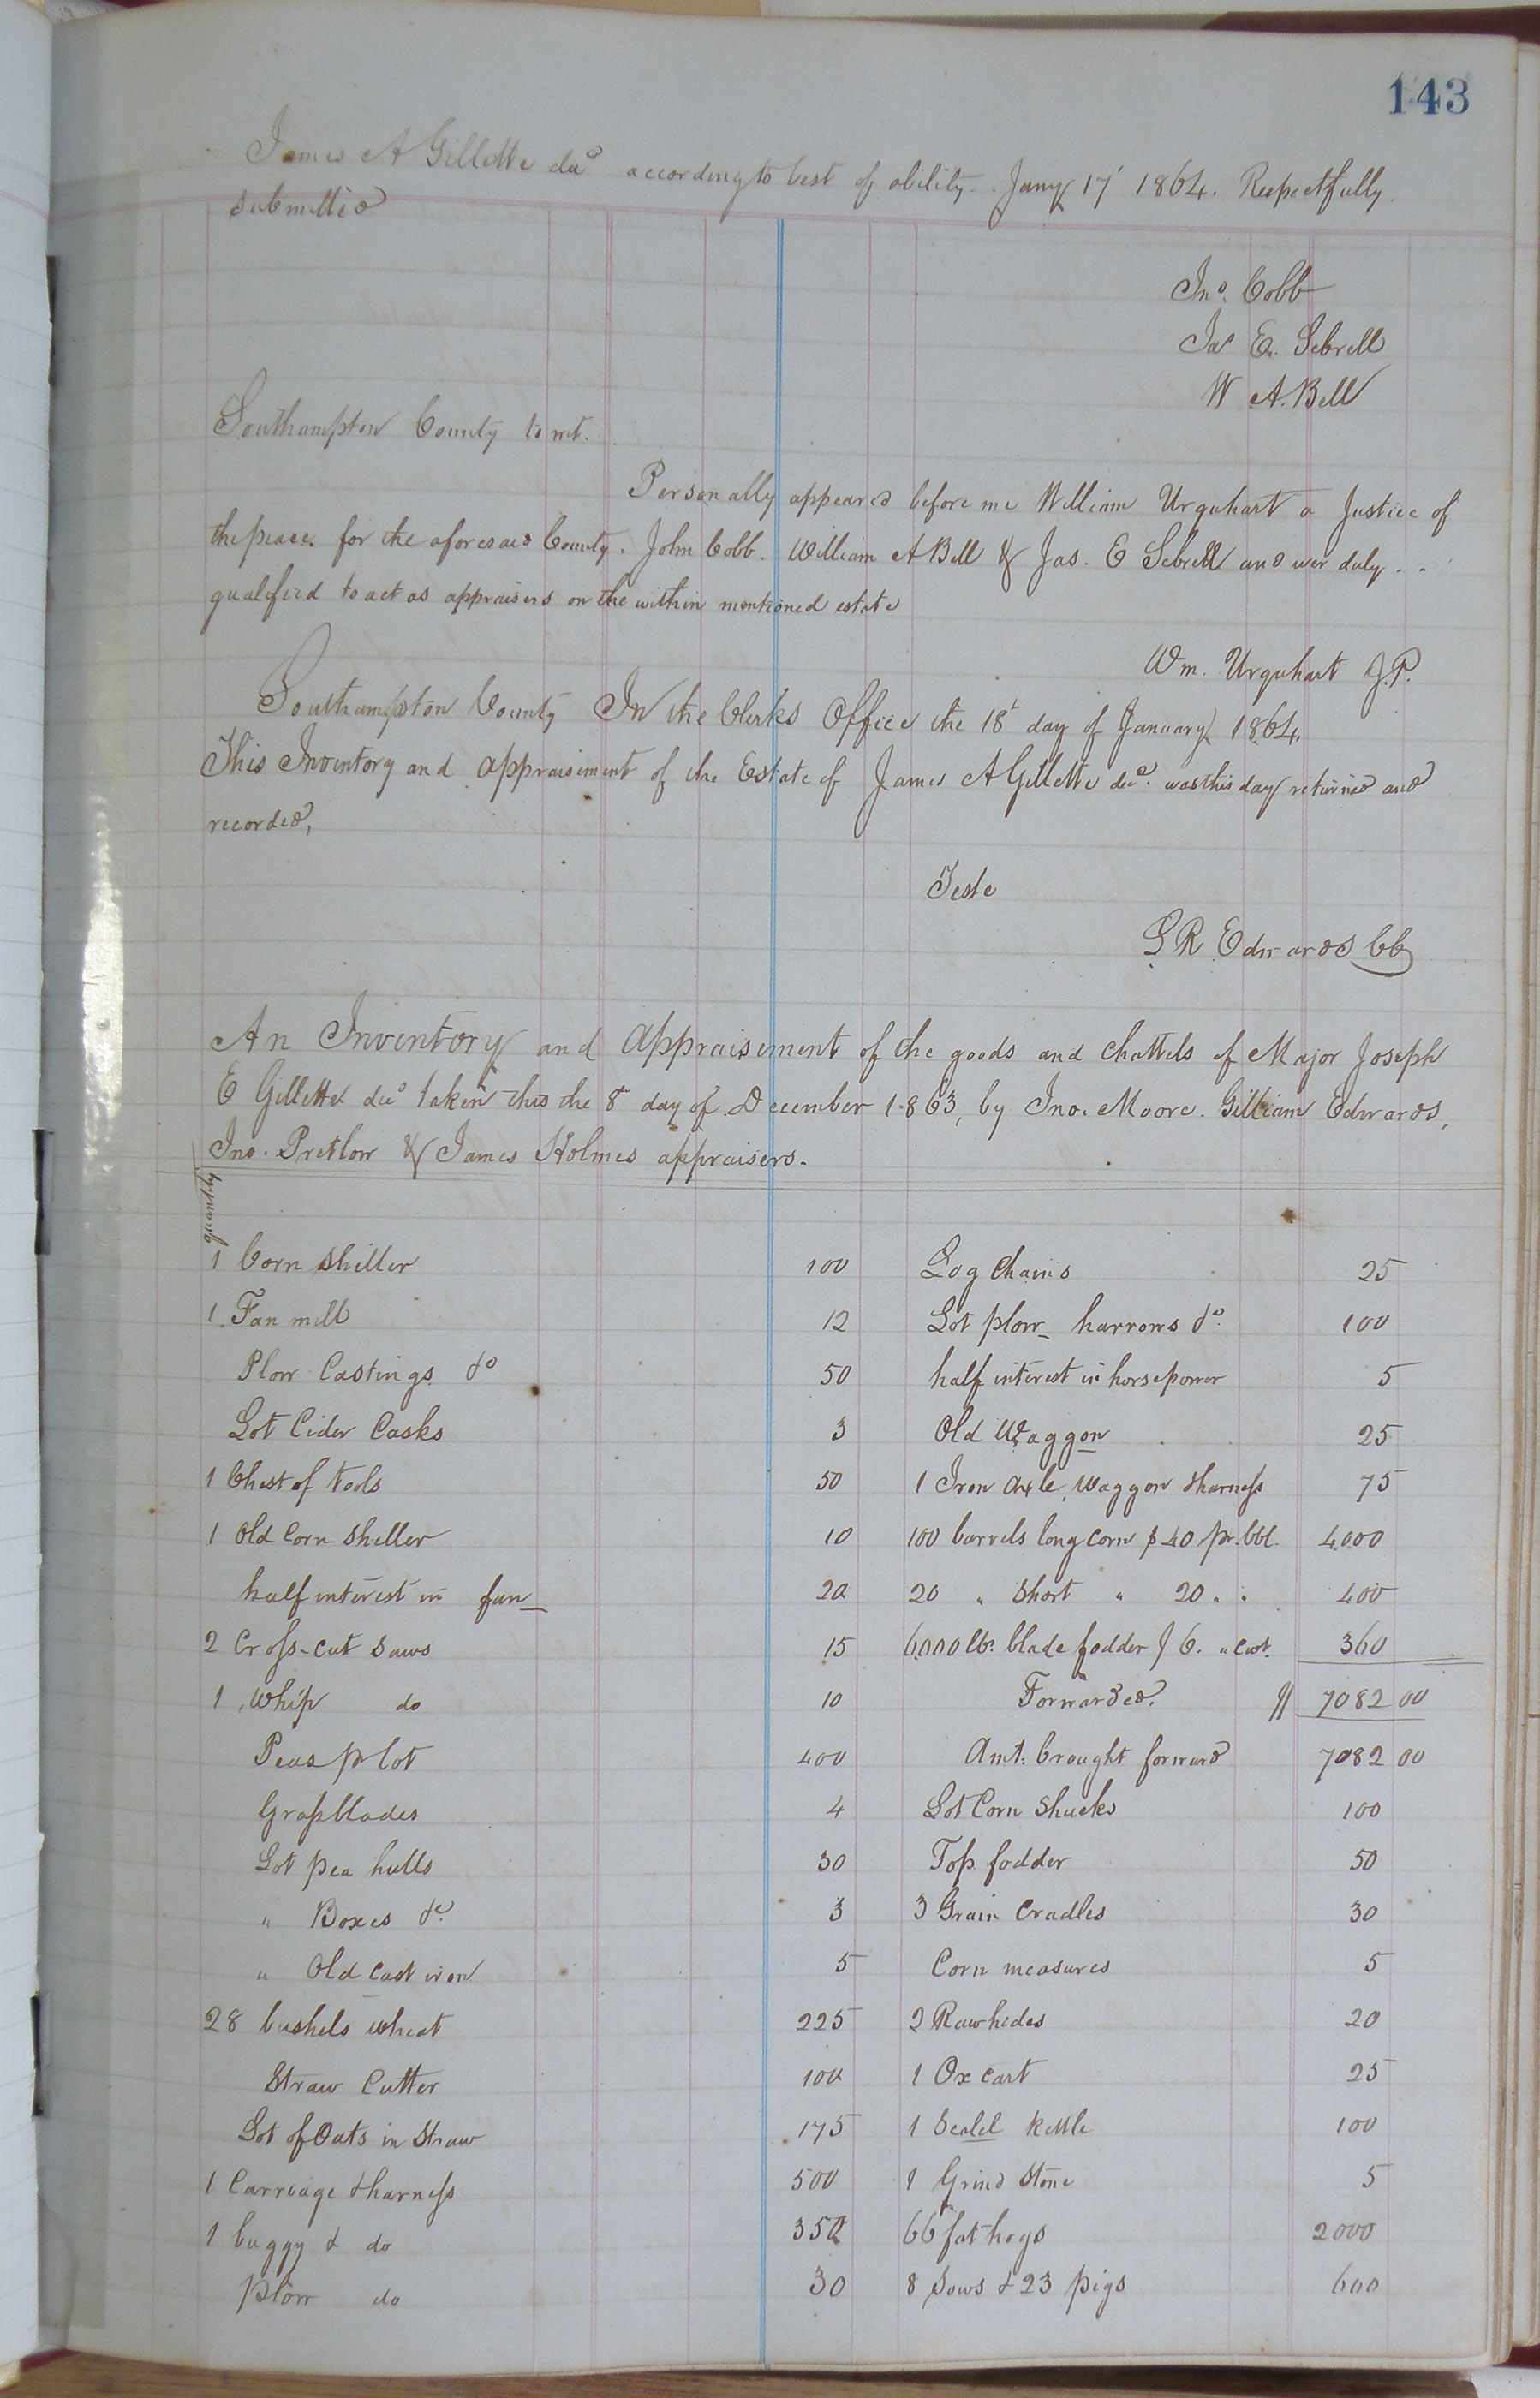 143
James A Gillette decd according to best of ability. Jany 17 1864. Respectfully
submitted
Jno. Cobb
Jas E. Sebrell
W A. Bell
Southampton County to wit.
Personally appeared before me William Urquhart a Justice of
the peace for the aforesaid County. John Cobb. William A Bell & Jas. E Sebrell and wer duly
qualified to act as appraisers on the within mentioned estate
Wm. Urquhart J.P.
Southampton County In the Clerks Office the 18t day of January 1864.
This Inventory and appraisement of the Estate of James A Gillette decd. was this day returned and
recorded,
Teste
L R Edwards CC
An Inventory and Appraisement of the goods and chattels of Major Joseph
E Gillette decd taken this the 8t day of December 1863, by Jno. Moore. Gilliam Edwards,
Jno. Pretlow & James Holmes appraisers.
quantity
1 Corn sheller 100
1 Fan mill 12
Plow Castings &c 50
Lot Cider Casks 3
1 Chest of tools 50
1 Old Corn Sheller 10
half interest in fan 20
2 Cross-cut Saws 15
1 Whip do 10
Peas pr lot 400
Grassblades 4
Lot pea hulls 30
" Boxes &c. 3
" Old cast iron 5
28 bushels wheat 225
Straw Cutter 100
Lot of Oats in Straw 175
1 Carriage & harness 500
1 buggy & do 350
Plow do 30
Log Chains 25
Lot plow harrows &c. 100
half interest in horsepower 5
Old Waggon 25
1 Iron axle Waggon & harness 75
100 barrels long corn $40 pr. bbl. 4000
20 " Short " 20 " " 400
6000 lbs. blade fodder $6. " cwt. 360
Forwarded. $ 7082 00
Amt. brought forward 7082 00
Lot Corn Shucks 100
Top fodder 50
3 Grain Cradles 30
Corn measures 5
2 Rawhides 20
1 Ox cart 25
1 Kettle 100
1 Grind Stone 5
66 fat hogs 2000
8 Sows & 23 pigs 600